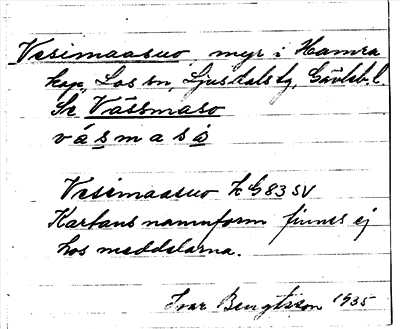 Vesimaasuo myr i Hamra
kap., Los sn, Ljusdals tg, Gävleb. l.
Se Vässmaso
v á s m a s å
Vesimaasuo k G 83 SV
Kartans namnform finnes ej
hos meddelarna.
Ivar Bengtsson 1935